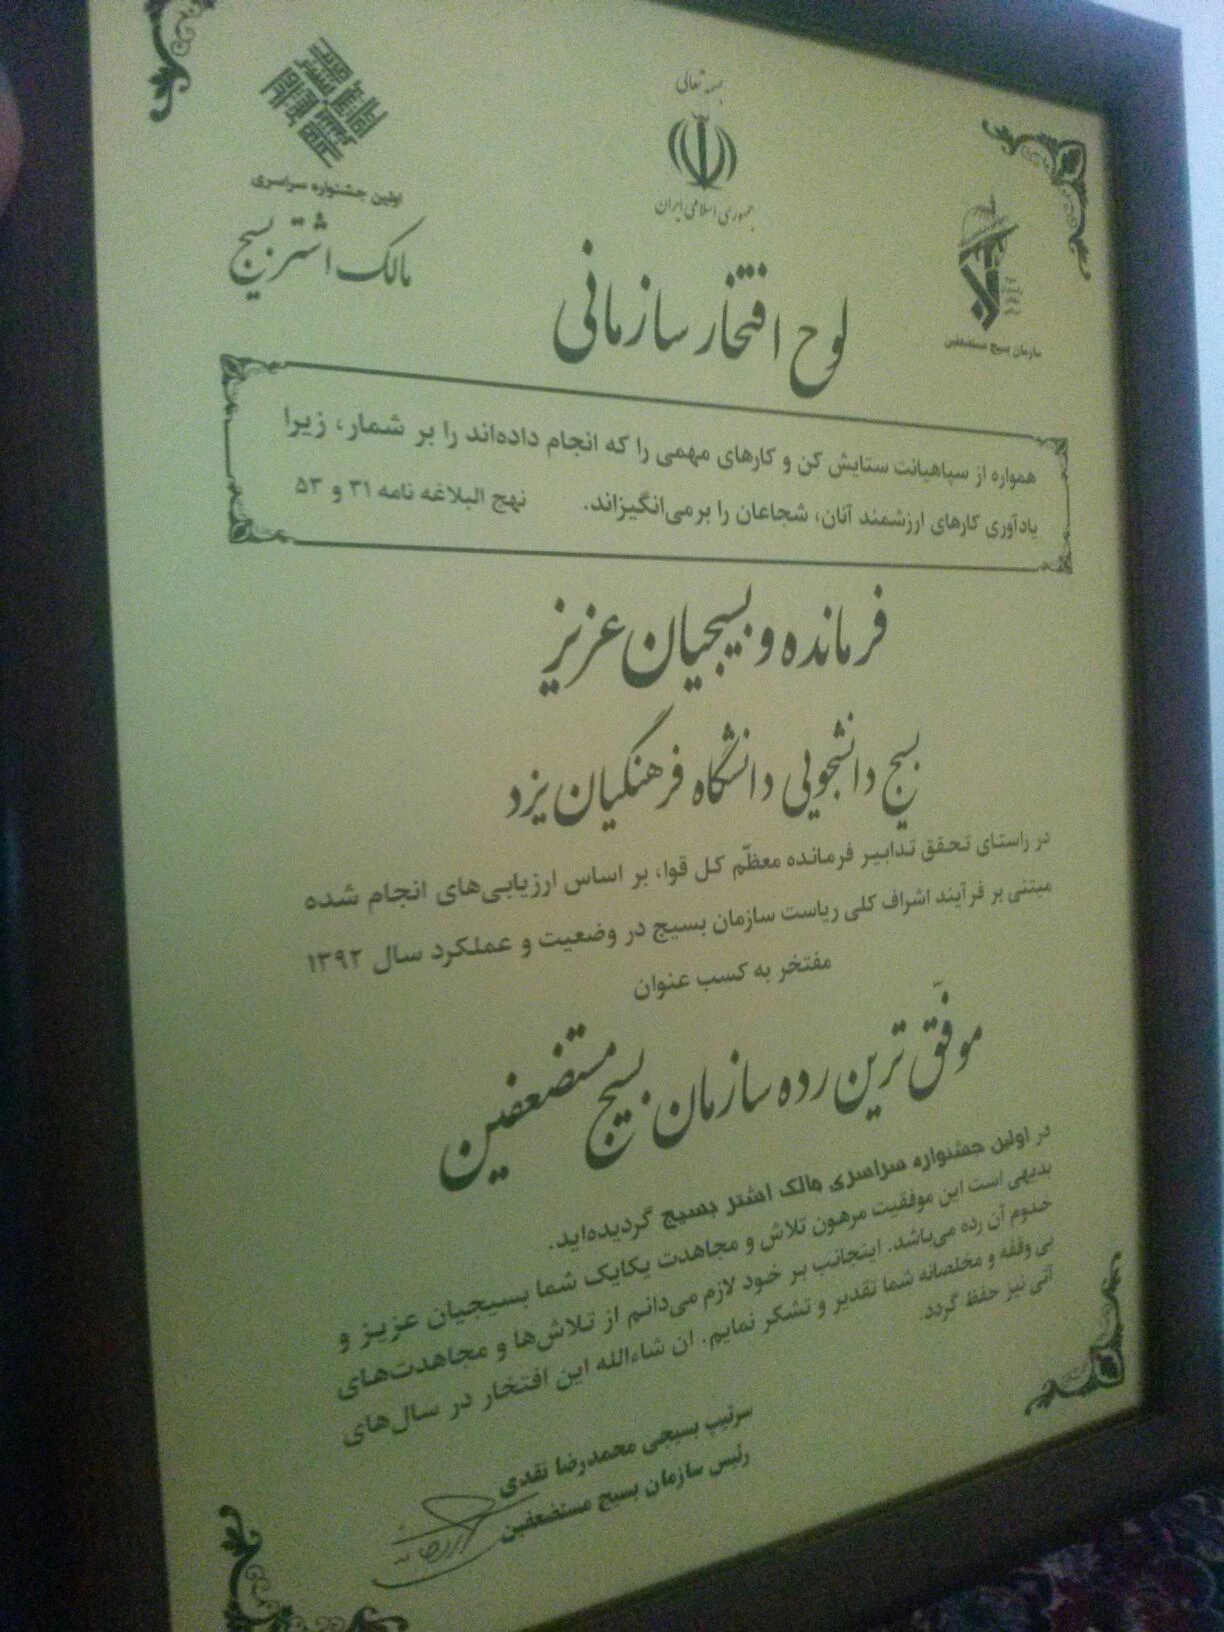 بسمه تعالی
جمهوری اسلامی ایران
اولین جشنواره سراسری
مالک اشتر بسیج
سازمان بسیج مستضعفین
لوح افتخار سازمانی
همواره از سپاهیانت ستایش کن و کارهای مهمی را که انجام داده‌اند را بر شمار، زیرا
یادآوری کارهای ارزشمند آنان، شجاعان را برمی‌انگیزاند. نهج البلاغه نامه ۳۱ و ۵۳
فرمانده و بسیجیان عزیز
بسیج دانشجویی دانشگاه فرهنگیان یزد
در راستای تحقق تدابیر فرمانده معظّم کل قوا، بر اساس ارزیابی‌های انجام شده
مبتنی بر فرآیند اشراف کلی ریاست سازمان بسیج در وضعیت و عملکرد سال ۱۳۹۲
مفتخر به کسب عنوان
موفّق ترین رده سازمان بسیج مستضعفین
در اولین جشنواره سراسری مالک اشتر بسیج گردیده‌اید.
بدیهی است این موفقیت مرهون تلاش و مجاهدت یکایک شما بسیجیان عزیز و
خدوم آن رده می‌باشد. اینجانب بر خود لازم می‌دانم از تلاش‌ها و مجاهدت‌های
بی وقفه و مخلصانه شما تقدیر و تشکر نمایم. ان شاءالله این افتخار در سال‌های
آتی نیز حفظ گردد.
سرتیپ بسیجی محمدرضا نقدی
رئیس سازمان بسیج مستضعفین